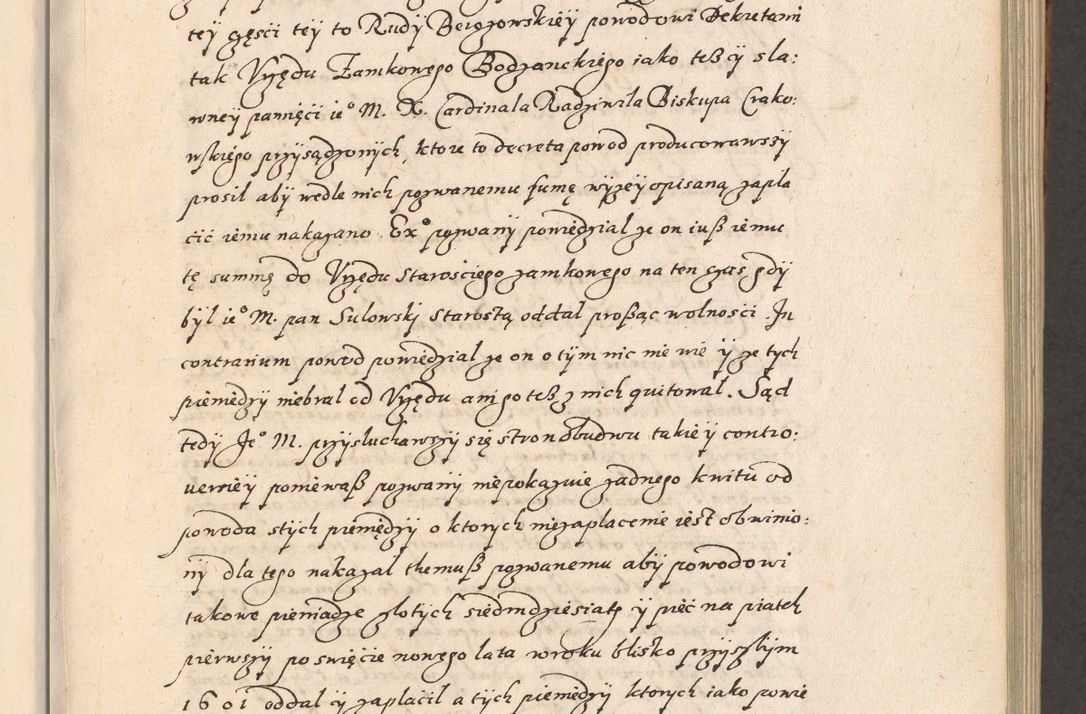 tey częsci tey to Rudy Bciozowskiey powodowi Dekretami
tak Urzędu Zamkowego Bodzanckiego iako też y sla:
wney pamięci ie° M. X. Cardinala Radziwila Biskupa Crako:
wskiego przysądzonych, ktore to decreta powod producowawszy
prosil aby wedle nich pozwanemu sumę wyzey opisaną zapla
cić iemu nakazano. Ex° pozwany powiedzial ze on iuß iemu
tę summę do Urzędu Starosciego zamkowego na ten czas gdy
był ie° M. pan Sulowski Starostą oddał proßąc wolnosci. In
contrarium powod powiedzial ze on o tym nic nie wie y ze tych
pieniedzy niebral od Urzędu ani po teß z nich quitowal. Sąd
tedy Je° M. przysluchawszy się stron obudwu takiey contro:
uersiey poniewaß pozwany niepokazuie zadnego kwitu od
powoda stych pieniędzy o ktorych niezaplacenie iest obwinio:
ny dla tego nakazal themuß pozwanemu aby powodowi
takowe pieniadze zlotych siedmdziesiąt y pięć na piatek
pierwszy po swięcie nowego lata w roku blisko przyszłym
1601 oddal y zaplacil a tych pieniedzy ktorych iako powie